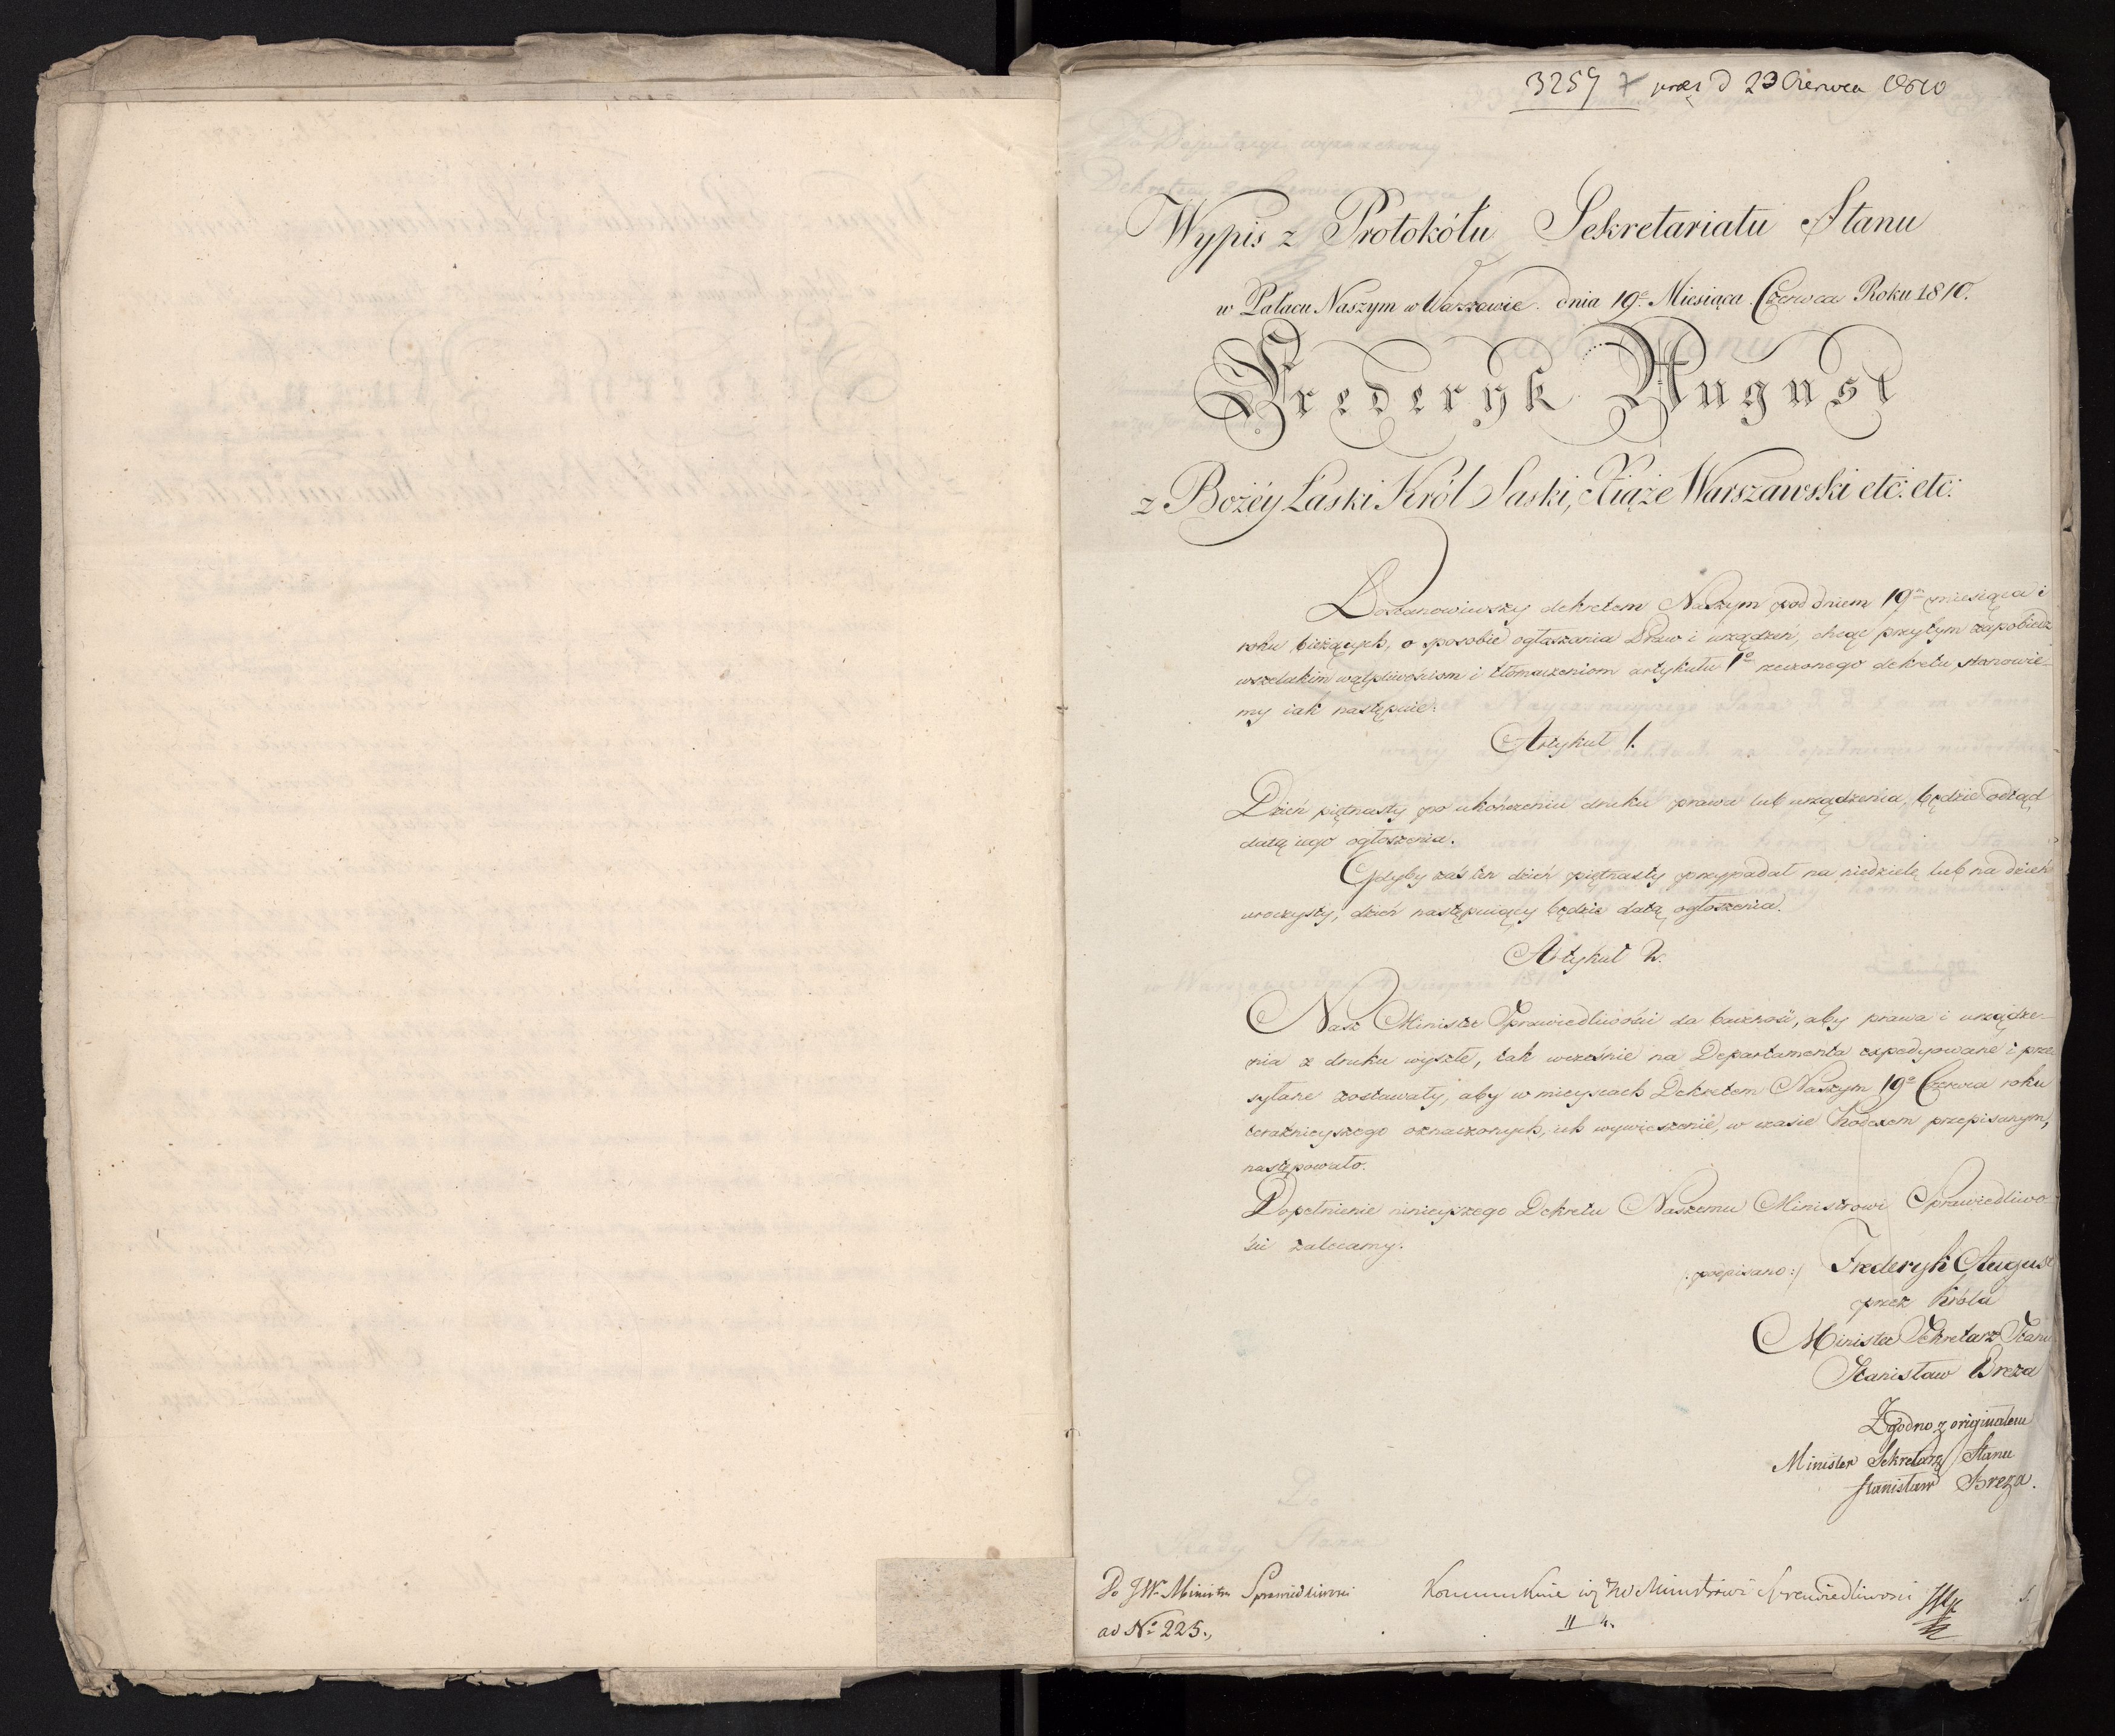 3259 prez d 23 Czerwca 1810
Wypis z Protokółu Sekretariatu Stanu
w Pałacu Naszym w Warszawie dnia 19º Miesiąca Czerwca Roku 1810.
Frederyk August
z Bożéy Łaski Król Saski, Xiąże Warszawski etc: etc:
Postanowiwszy dekretem Naszym pod dniem 19m miesiąca i
roku bieżących, o sposobie ogłaszania Praw i urządzeń, chcąc przytym zapobiedz
wszelakim wątpliwościom i tłomaczeniom artykułu 1º rzeczonego dekretu, stanowie-
my iak następuie:
Artykuł 1.
Dzień piętnasty po ukończeniu druku prawa lub urządzenia, będzie odtąd
datą iego ogłoszenia.
Gdyby zaś ten dzień piętnasty przypadał na niedzielę lub na dzień
uroczysty, dzień następuiący będzie datą ogłoszenia.
Artykuł 2.
Nasz Minister Sprawiedliwości da baczność, aby prawa i urządze-
nia z druku wyszłe, tak wcześnie na Departamenta expedyowane i prze
syłane zostawały, aby w mieyscach Dekretem Naszym 19º Czerwca roku
teraźnieyszego oznaczonych, ich wywieszenie, w czasie Kodexem przepisanym,
następowało.
Dopełnienie ninieyszego Dekretu Naszemu Ministrowi Sprawiedliwo-
ści zalecamy.
/:podpisano:/ Frederyk August
przez Króla
Minister Sekretarz Stanu
Stanisław Breza
Zgodno z originałem
Minister Sekretarz Stanu
Stanisław Breza.
Do JW. Ministra Sprawiedliwości
ad Nº 225.,
Ministrowi Sprawiedliwości